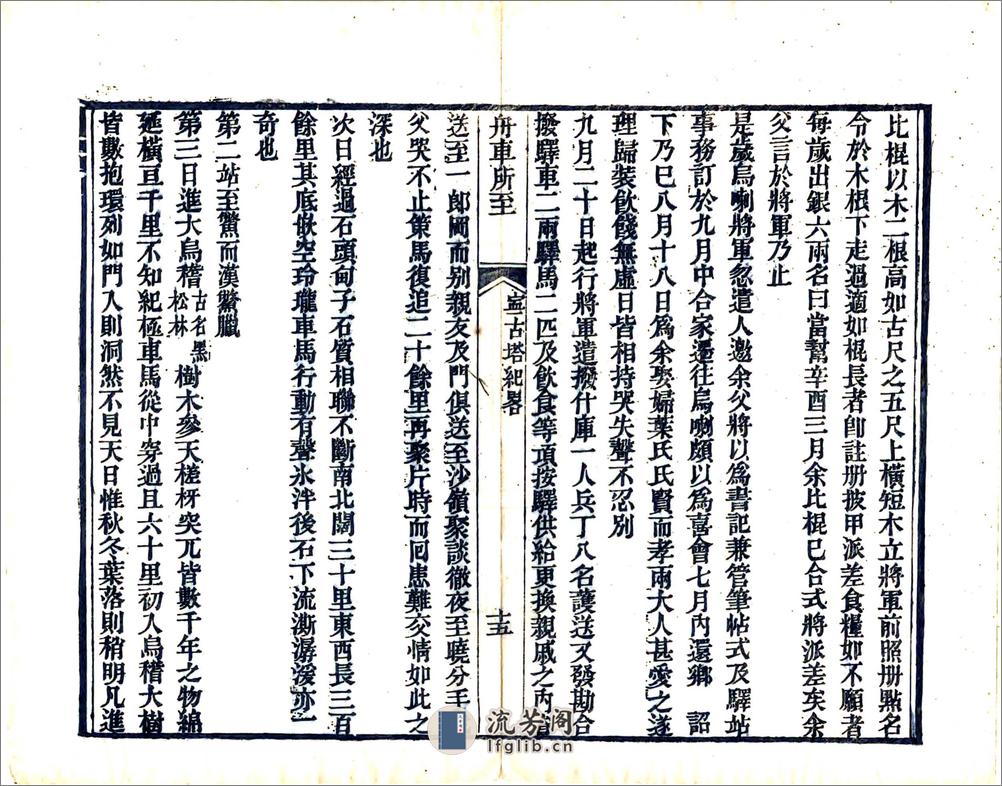 比棍以木二根高如古尺之五尺上橫短木立將軍前照册㸃名
令於木棍下走過適如棍長者卽註册披甲派差食糧如不願者
每歲出銀六兩名曰當幫辛酉三月余比棍巳合式將派差矣余
父言於將軍乃止
是歲烏喇將軍忽遣人邀余父將以爲書記兼管筆帖式及驛站
事務訂於九月中合家遷往烏喇頗以爲喜會七月內還鄉 詔
下乃巳八月十八日爲余娶婦葉氏氏賢而孝兩大人甚愛之遂
理歸裝飲餞無虛日皆相持哭失聲不忍别
九月二十日起行將軍遣撥什庫一人兵丁八名護送又發勘合
撥驛車二兩驛馬二匹及飲食等項按驛供給更換親戚之內
舟車所至
寧古塔紀畧
十五
送至一郎岡而别親友及門俱送至沙嶺聚談徹夜至曉分手
父哭不止策馬復追二十餘里再聚片時而囘患難交情如此之
深也
次日經過石頭甸子石質相聯不斷南北闊三十里東西長三百
餘里其底嵌空玲瓏車馬行動有聲氷泮後石下流澌潺湲亦一
奇也
第二站至鶩而漢綮臘
第三日進大烏稽古名黑松林樹木參天槎枒突兀皆數千年之物綿
延橫亘千里不知紀極車馬從中穿過且六十里初入烏稽大樹
皆數抱環列如門入則洞然不見天日惟秋冬葉落則稍明凡進
流芳阁
lfglib.cn